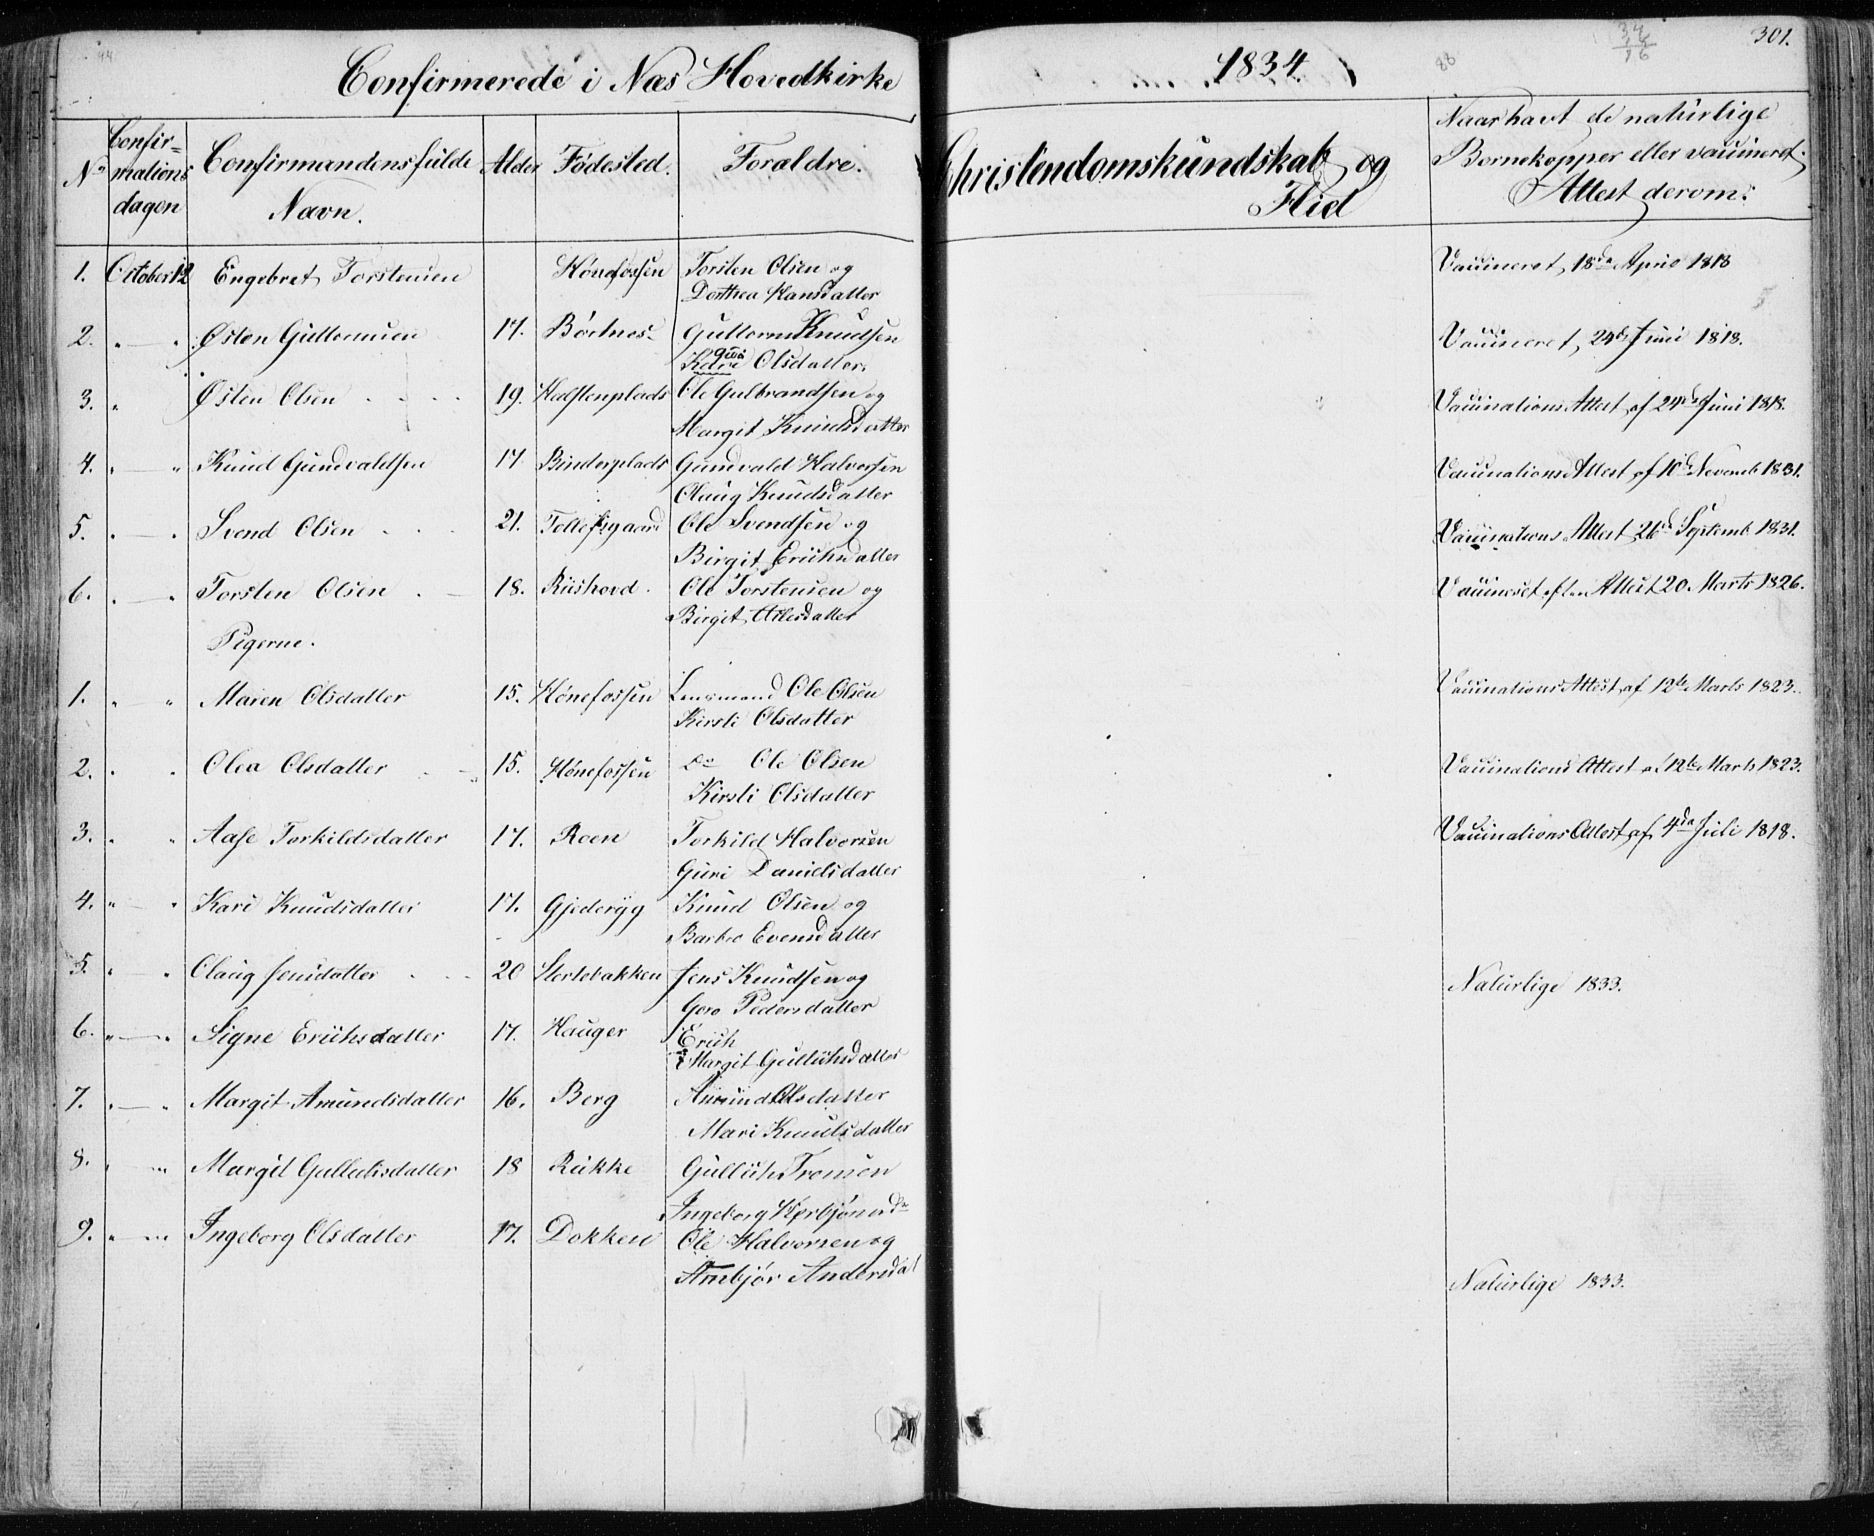 Confirmerede i Næs Hovedkirke 1834. 301.
No Confirmations dagen Confirmandens fulde Navn. Alder Födested. Forældre. Christendomskundskab og Flid Naar havt de natúrlige Börnekopper eller vaccineret; Attest derom.
1. October 12 Engebret Torstensen Hönefossen Torsten Olsen og Vaccineret 18de April 1818
Dorthea Hansdatter
2. " — " Östen Guttormsen 17. Börtnes Guttorm Knudsen Vaccineret, 24de Juni 1818.
Olsdatter.
3. " Östen Olsen 19. Halstenplads Ole Gulbrandsen og Vaccinations Attest af 24de Juni 1818.
Margit Knudsdatter
4. " — " Knud Gundvaldsen 17 Binderplads Gundvald Halvorsen Vaccinations Attest af 10de Novemb 1831.
Olaug Knudsdatter
5. " — " Svend Olsen 21. Tollefsgaard Ole Svendsen og Vaccinations Attest 26de Septemb 1831.
Birgit Erichsdatter
6. " — " Torsten Olsen 18. Riishovd. Ole Torstensen og Vaccineret efter Attest 20 Marts 1826.
Birgit Atlesdatter
Pigerne.
1. " — " Maren Olsdatter 15. Hönefossen Lensmand Ole Olsen Vaccinations Attest af 12te Marts 1823.
Kirsti Olsdatter
2. " " Olea Olsdatter 15. Hönefossen Do Ole Olsen Vaccinations Attest af 12te Marts 1823.
Kirsti Olsdatter
3. " " Aase Torkildsdatter 17. Roen Torkild Halvorsen Vaccinations Attest af 4de Juli 1818.
Guri Danielsdatter
4. " — " Kari Knudsdatter 17. Gjederyg Knud Olsen og
Barbro Evensdatter
5. " — " Olaug Jensdatter 20 Stortebakken Jens Knudsen og Natúrlige 1833.
Goro Pedersdatter
6. " — " Signe Erichsdatter 17. Hauger Erich
Margit Gullichsdatter
7. " — " Margit Amundsdatter 16. Berg Amund Olsdatter
Mari Knudsdatter
8. " — " Margit Gullichsdatter 18 Rukke Gullich
Ingeborg
9. " — " Ingeborg Olsdatter 17. Dokken Ole Halvorsen og
Ambjör Andersdat Natúrlige 1833.